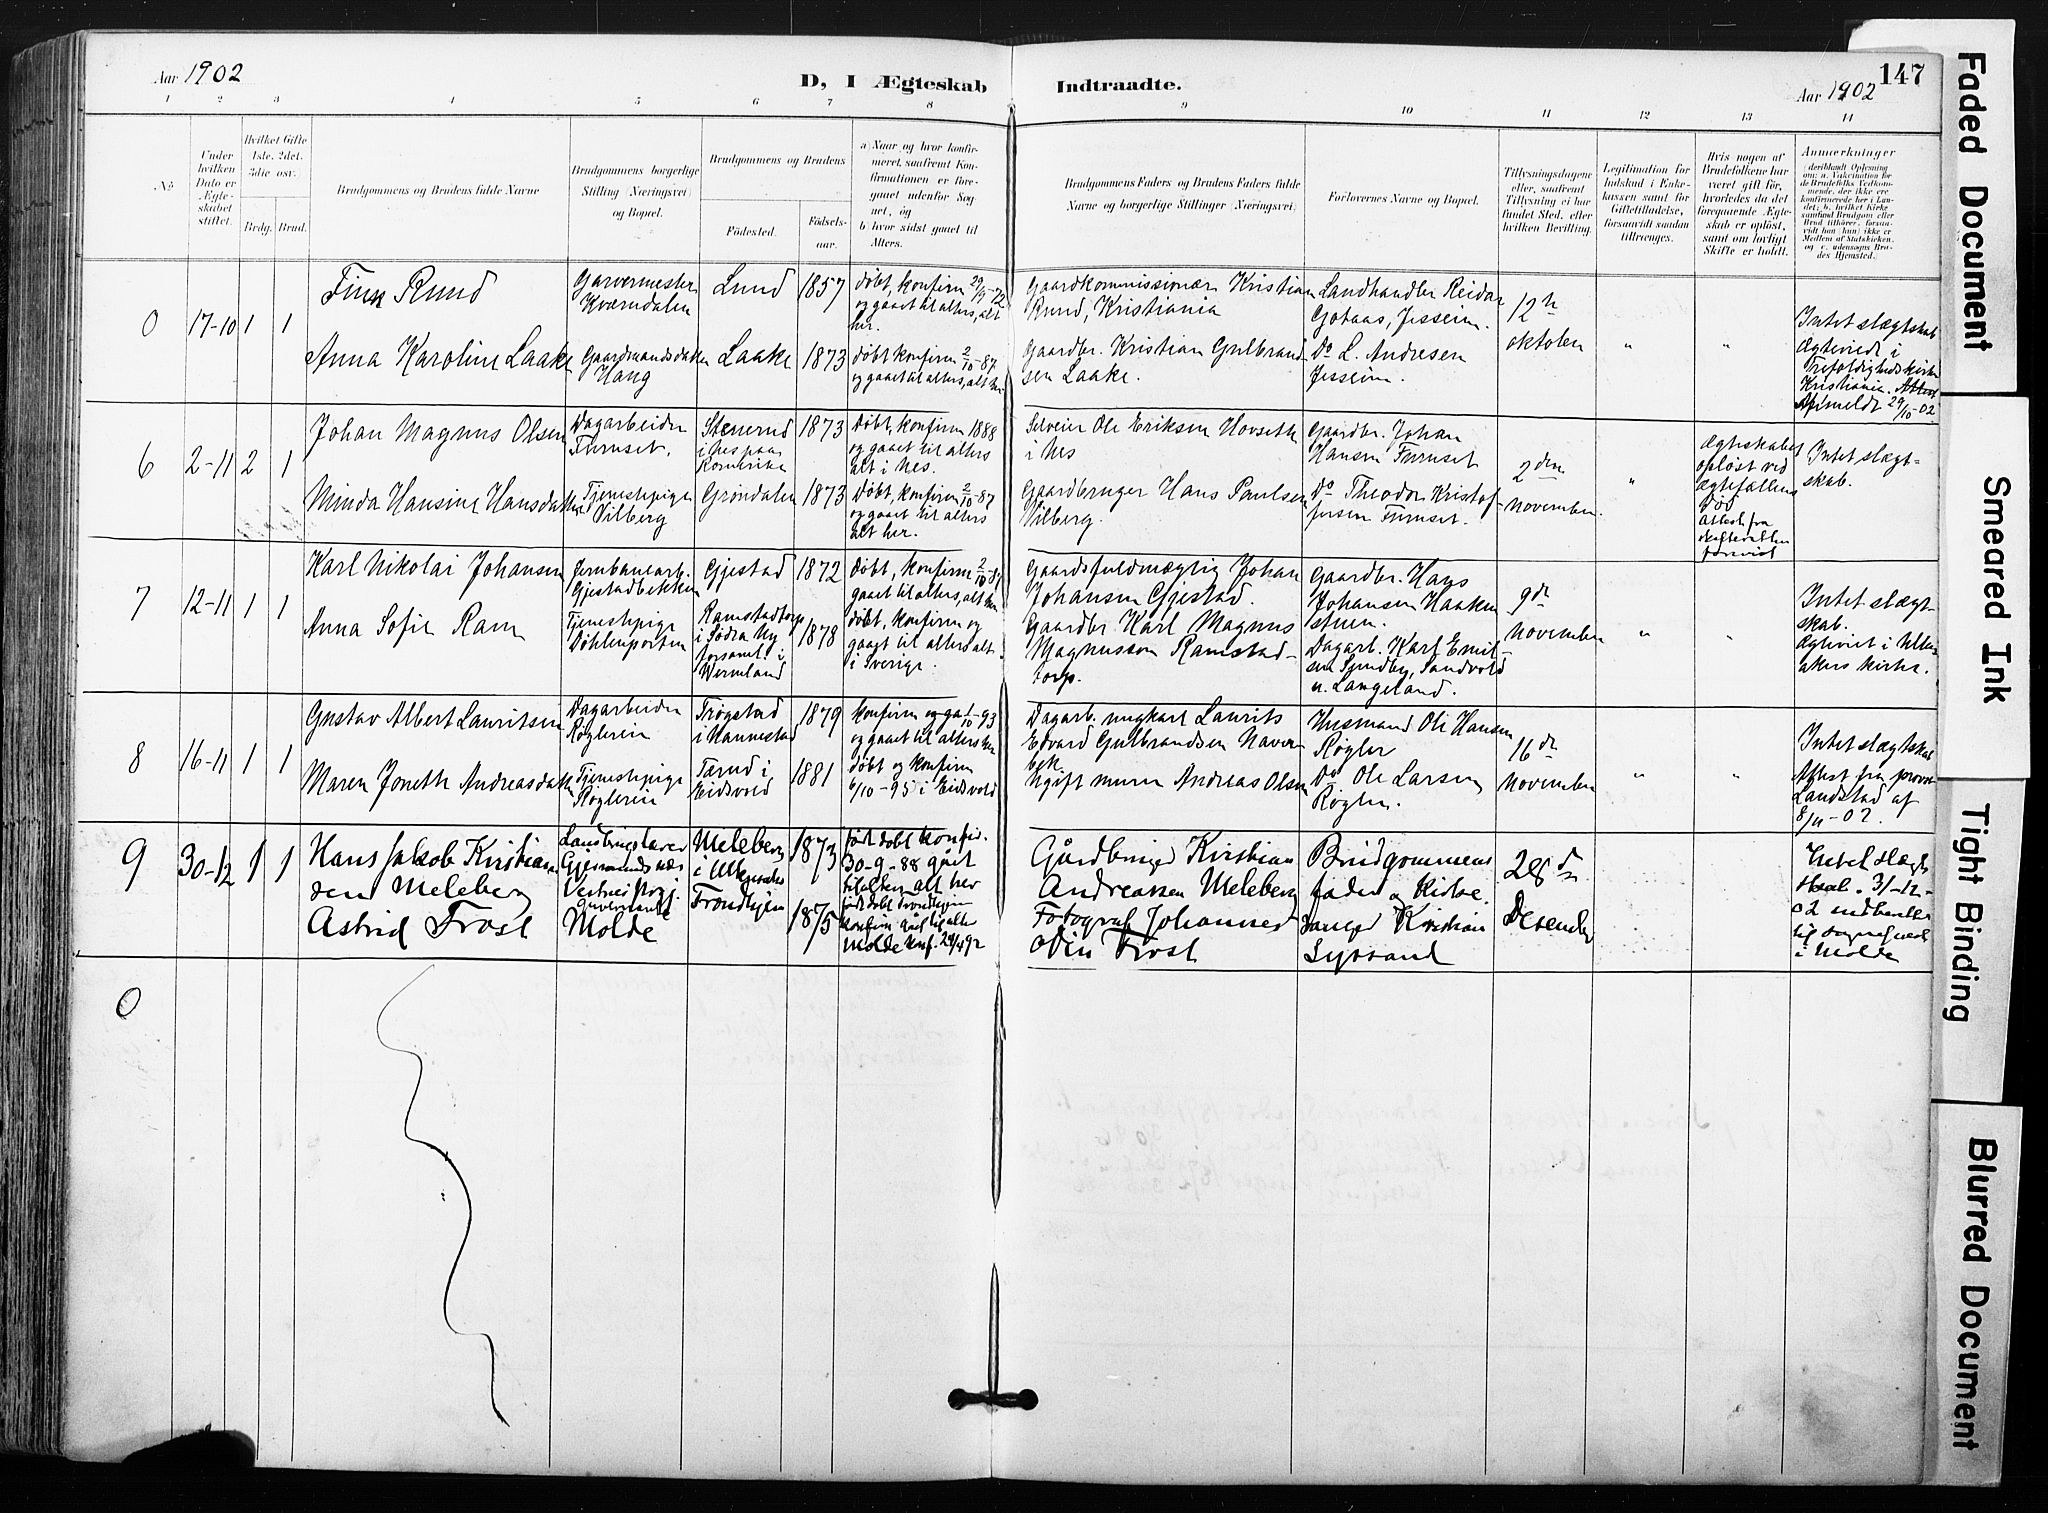 Aar 1902
D, I Ægteskab
Indtraadte.
Aar 1902
147
1 2 3 4 5 6 7 8 9 10 11 12 13 14
No
Under hvilken Dato er Ægteskabet stiftet.
Hvilket Gifte 1ste, 2det, 3die osv.
Brdg. Brud.
Brudgommens og Brudens fulde Navne
Brudgommens borgerlige Stilling (Næringsvei) og Bopæl.
Brudgommens og Brudens
Fødested.
Fødselsaar.
a) Naar og hvor konfirmeret, saafremt Konfirmationen er foregaaet udenfor Sognet, og
b) hvor sidst gaaet til Alters.
Brudgommens Faders og Brudens Faders fulde Navne og borgerlige Stillinger (Næringsvei)
Forlovernes Navne og Bopæl.
Tillysningsdagene eller, saafremt Tillysning ei har fundet Sted, efter hvilken Bevilling.
Legitimation for Indskud i Enkekassen samt for Giftetilladelse, forsaavidt saadan tiltrænges.
Hvis nogen af Brudefolkene har været gift før, hvorledes da det foregaaende Ægteskab er opløst, samt om lovligt Skifte er holdt.
Anmærkninger
0
17-10
1
1
Finn Ruud
Garvermester
Kværndalen
Lund
1857
Døbt, konfirm 29/9-72
og gaaet til alters, alt
her.
Gaardkommissionær Kristian
Ruud, Kristiania
Landhandler Reidar
Gotaas, Jesseim.
12te
oktober
"
"
Intet slægtskab
Ægteviede i
Trefoldighedskirke
Kristiania.
Afmeldt 29/10-02
Anna Karoline Laake
Gaardmandsdatter
Haug
Laake
1873
Døbt konfirm 2/10-87
og gaaet til alters, alt her
Gaardbr. Kristian Gulbrand
sen Laake.
Do L. Andresen
Jesseim.
6
2-11
2
1
Johan Magnus Olsen
Dagarbeider
Furuset.
Stenerud
i Nes paa
Romerike
1873
Døbt, konfirm 1888
og gaaet til alters
alt i Nes.
Selveier Ole Eriksen Hovseth
i Nes
Gaardbr. Johan
Hansen Furuset
2den
november.
"
Ægteskabet
opløst ved
ægtefællens
død
Attest fra
skifteretten
forevist
Intet slægt-
skab.
Minda Hansine Hansdatter
Tjenestepige
Vilberg
Grøndalen
1873
Døbt, konfirm 2/10-87
og gaaet til alters
alt her.
Gaardbruger Hans Paulsen
Vilberg.
Do Theodor Kristof-
fersen Furuset.
7
12-11
1
1
Karl Nikolai Johansen
Jernbanearb.
Gjestadbekken
Gjestad
1872
Døbt, konfirm 2/10-87
gaaet til alters, alt her
Gaardsfuldmægtig Johan
Johansen Gjestad.
Gaardbr. Hans
Johansen Haaken
stuen.
9de
november
"
"
Intet slægt-
skab.
Ægteviet i Ullen
akers kirke.
Anna Sofie Ram
Tjenestepige
Døhlenporten
Ramstadtorp
i Södra Ny
forsaml. i
Wermland
1878
døbt, konfirm og
gaaet til alters alt
i Sverige.
Gaardbr. Karl Magnus
Magnusson Ramstad-
torp.
Dagarb. Karl Emil-
sen Sundby, Sandvold
u. Langeland.
8
16-11
1
1
Gustav Albert Lauritsen
Dagarbeider
Røglereie
Trøgstad
i Nannestad
1879
konfirm 1/10-93
og gaaet til alters her
Dagarb. ungkarl Laurits
Edvard Gulbrandsen Naver
bek
Husmand Ole Hansen
Røgler
16de
november
"
"
Intet slægtskab
Attest fra provst
Landstad af
8/11-02.
Maren Joneth Andreasdatter
Tjenestepige
Røglereie
Tærud i
Eidsvold
1881
Døbt og konfirm
6/10-95 i Eidsvold
Ugift murer Andreas Olsen
Do Ole Larsen
Røgler.
9
30-12
1
1
Hans Jakob Kristian
sen Meleberg
Gjermundsnæs
Vestnes
Meleberg
i Ullensaker
1873
født døbt konfir.
30-9-88 gået
til alters alt her
Gårdbruger Kristian
Andreassen Meleberg
Brudgommens
fader og Kirke
sanger Kristian
Lyssand
28de
Desember
Intet slægt-
skab. 31-12-
02 indberettet
til
i Molde
Astrid Frost
guvernante
Molde
Trondhjem
1875
født døbt Trondhjem
konfirm gået til alter
Molde konf. 24/4 92
Fotograf Johannes
Odin Frost
0
Faded Document
Smeared Ink
Tight Binding
Blurred Document